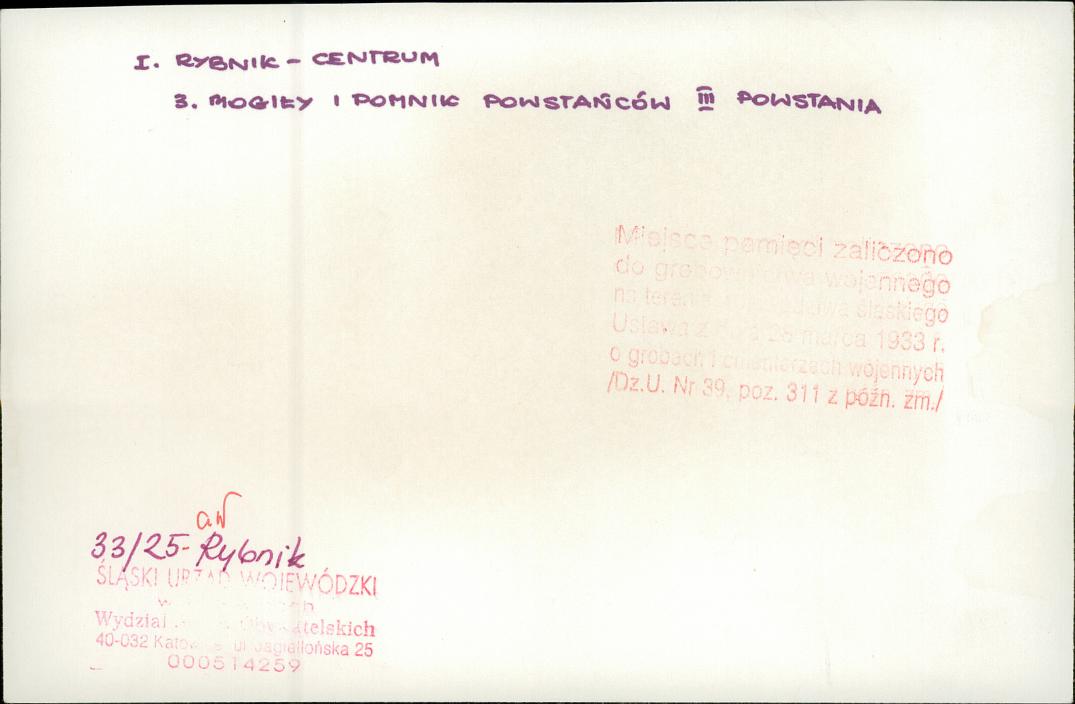 I. RYBNIK - CENTRUM
3. MOGIŁY I POMNIK POWSTAŃCÓW III POWSTANIA
Miejsce pamięci zaliczono
do grobownictwa wojennego
na terenie województwa śląskiego
Ustawa z dnia 28 marca 1933 r.
o grobach i cmentarzach wojennych
/Dz.U. Nr 39, poz. 311 z późn. zm./
aW
33/25- Rybnik
ŚLĄSKI URZĄD WOJEWÓDZKI
Wydział Obywatelskich
40-032 Katowice ul Jagiellońska 25
000514259